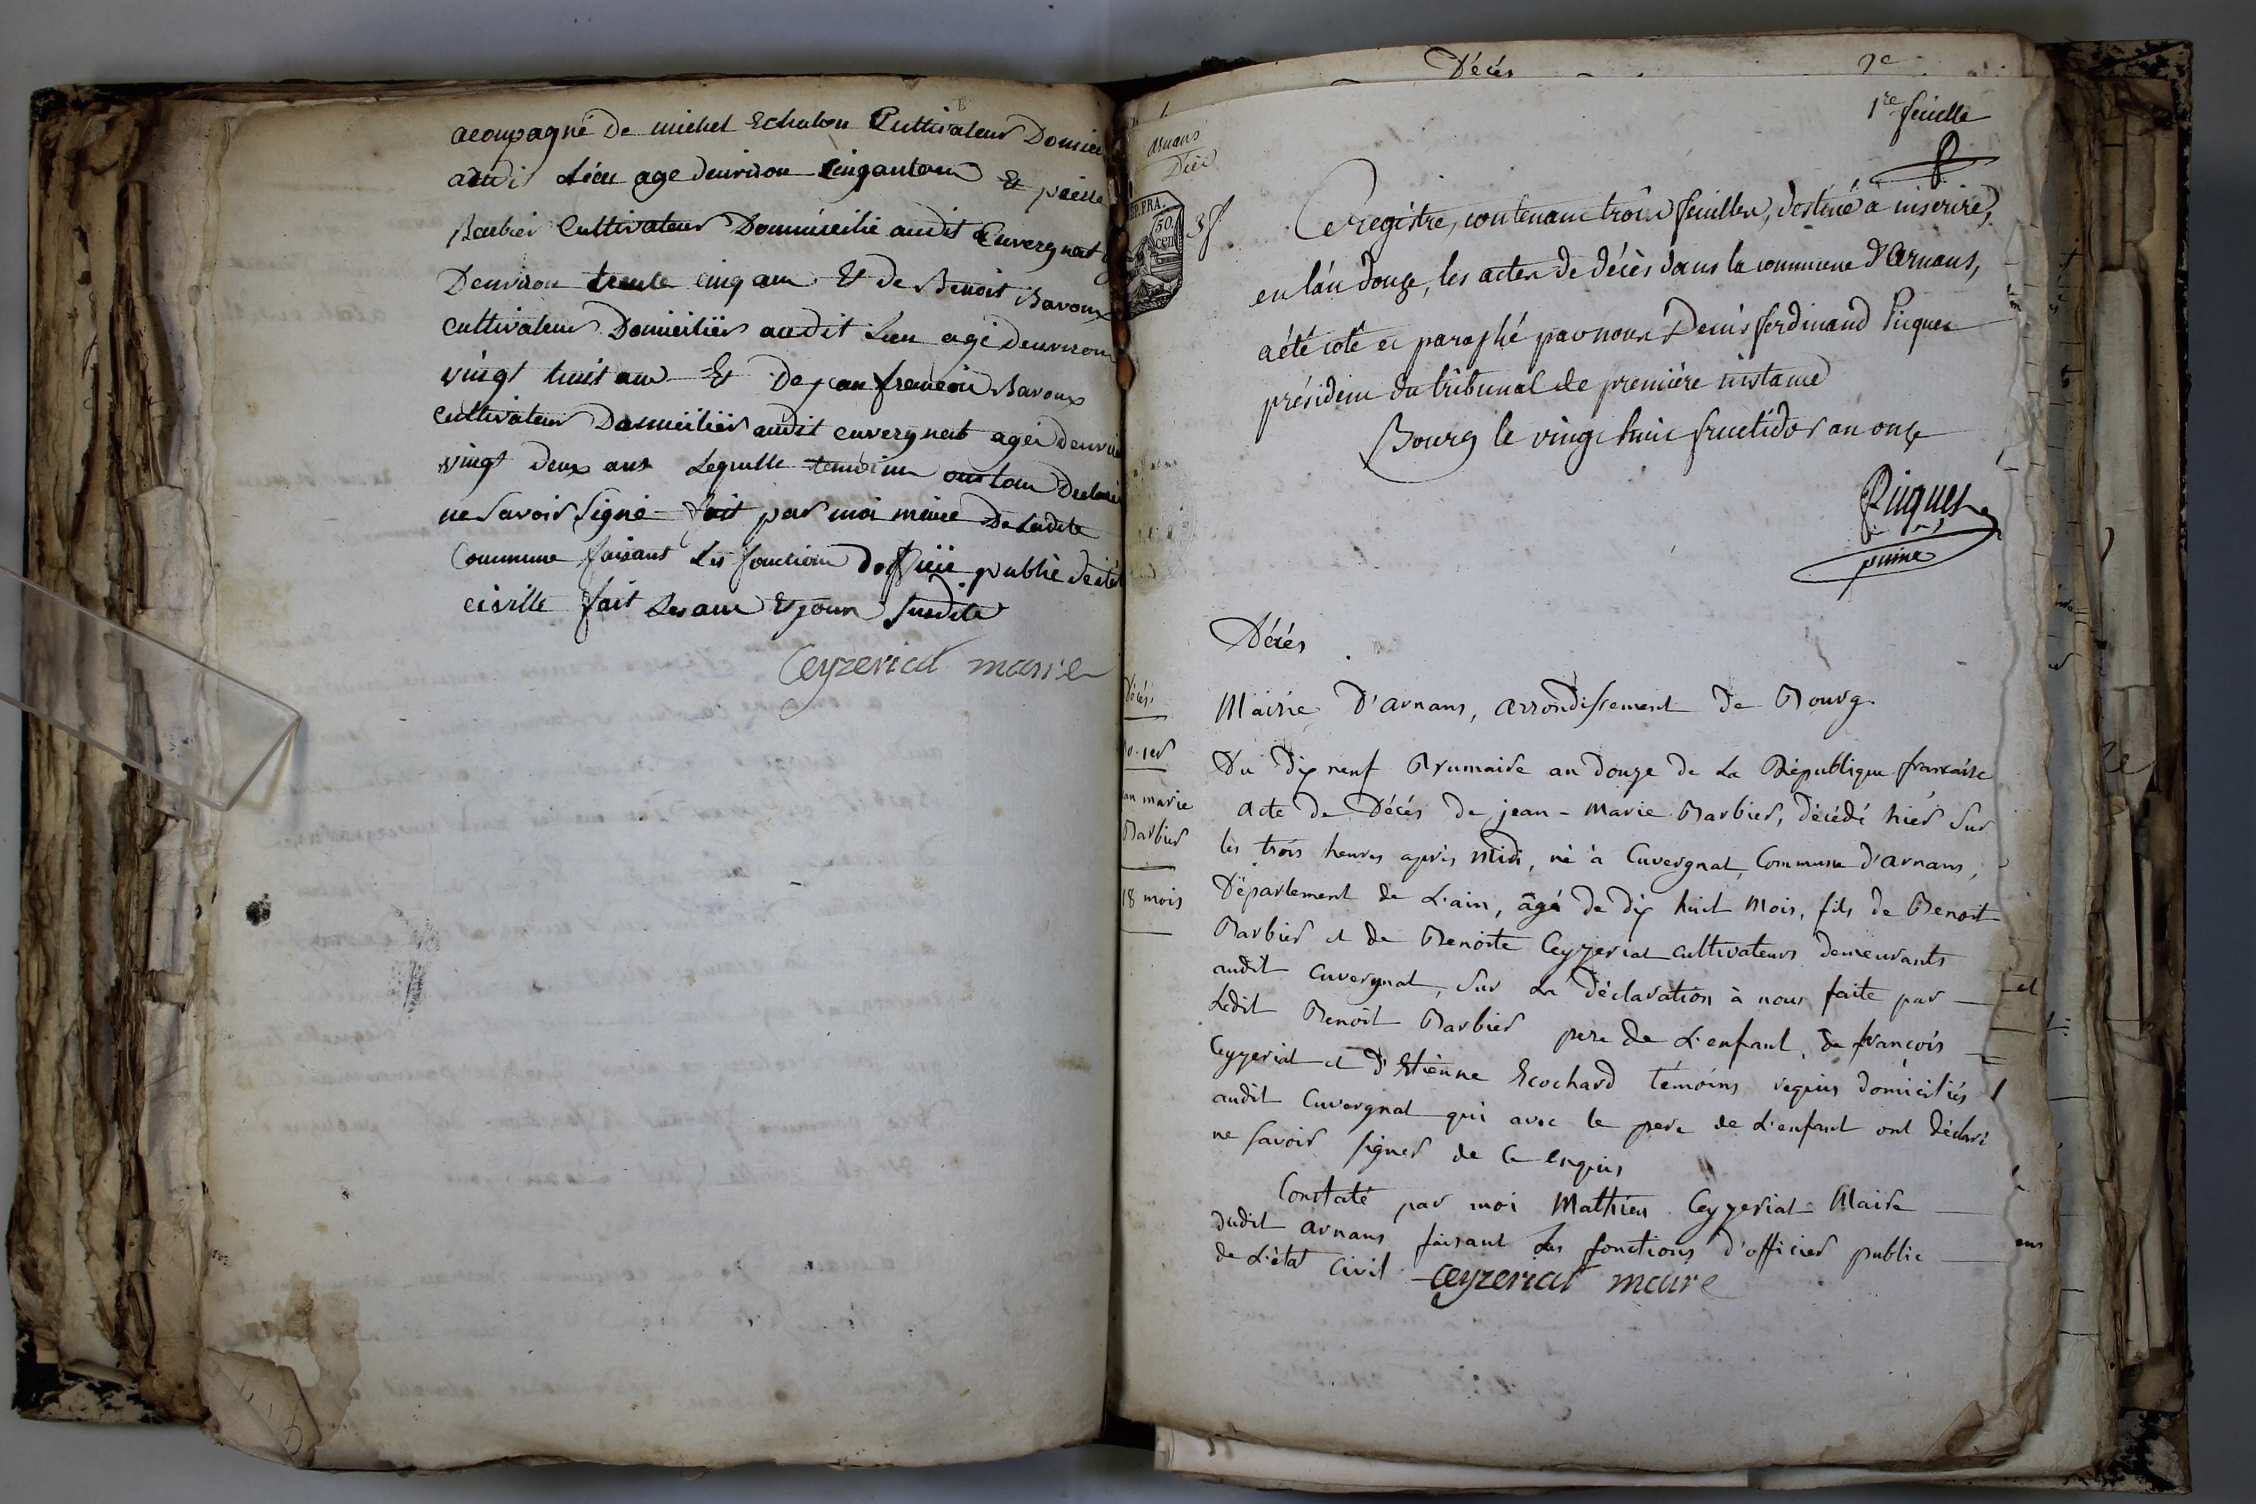 acompagné de michel Echalon Cultivateur Domici
audit Lieu age denviron cinquante an Et pierre
Barbier Cultivateur Domiscilie audit Cuvergnat
Denviron trente cinq ans Et de Benoit Bavoux
cultivateur Domicilier audit Lieu agé denviron
vingt huit ans Et De jean francois Bavoux
cultivateur Domicilier audit cuvergnat agé denvir
vingt deux ans Lequelle temoin ont Declaré
ne Savoir Signé fait par moi maire De Ladite
Commune faisant Les fonction doffficie publie
civille fait Les an Et jour Susdite
Ceyzeriat maire
Décès
1re feuille
arnans
Décès
REP. FRA.
50
cent
Ce registre, contenant trois feuilles, destiné a inscrire,
en l'an douze, les actes de décès dans la commune d'Arnans,
a été coté et paraphé par nous Denis ferdinand Picquet
président du tribunal de première instance
Bourg le vingt huit fructidor an onze
Picquet
Décès
Mairie D'arnans, arrondissement de Bourg.
Décès
n. 1er
jean marie
Barbier
18 mois
Du dix neuf Brumaire an douze de La République francaise
acte de Décès de jean - Marie Barbier, décédé hier Sur
les trois heures après midi, né à Cuvergnat, Commune d'arnans,
Département de L'ain, âgé de dix huit Mois, fils de Benoit
Barbier et de Benoite Ceyzeriat cultivateurs demeurants
audit Cuvergnat, Sur La déclaration à nous faite par
Ledit Benoit Barbier pere de L'enfant, de francois
Ceyzeriat et d'Etienne Ecochard témoins requis domiciliés
audit Cuvergnat qui avec le pere de L'enfant ont déclaré
ne Savoir signer de ce enquis
Constaté par moi Mathieu Ceyzeriat Maire
dudit arnans faisant Les fonctions d'officier public
de L'état Civil
Ceyzeriat maire